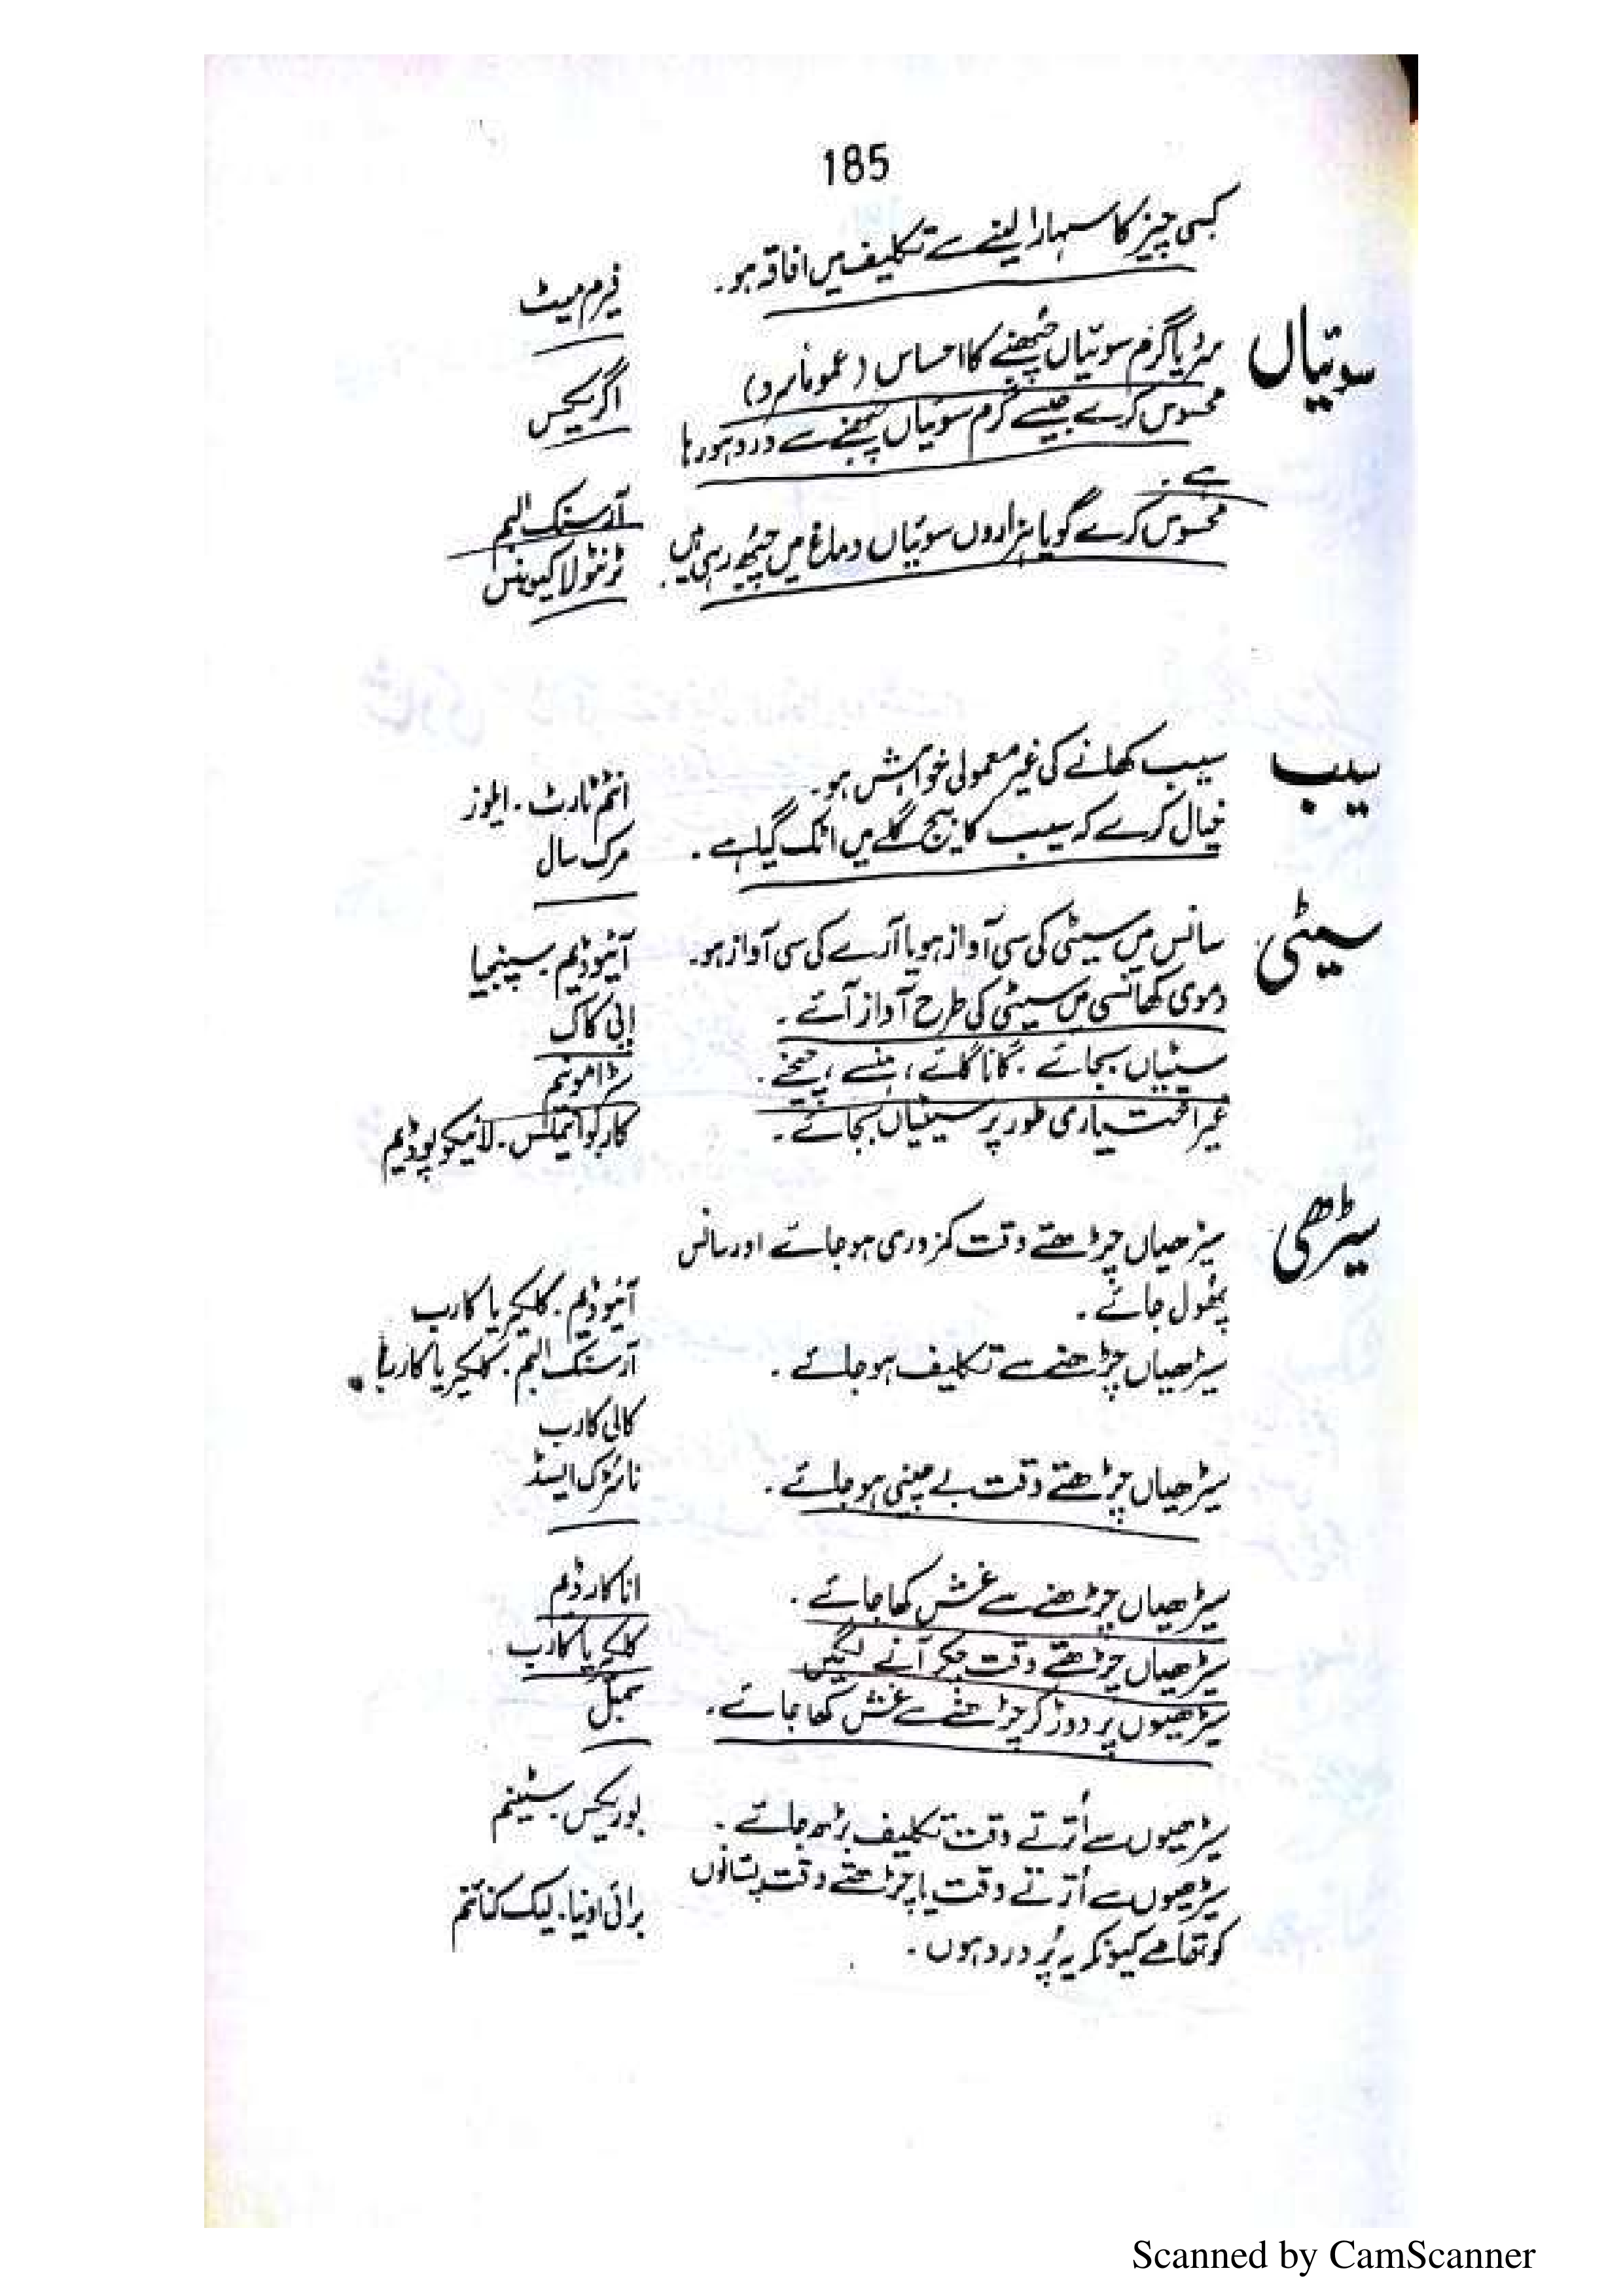 185
کسی چیز کا سہارا لینے سے تکلیف میں افاقہ ہو۔
فیرم میٹ
سوئیاں
سرد یا گرم سوئیاں چُبھنے کا احساس (عموماً سرد)
اگریکس
محسوس کرے جیسے گرم سوئیاں چبھنے سے درد ہو رہا
ہے۔
آرسنک البم
محسوس کرے گویا ہزاروں سوئیاں دماغ میں چُبھ رہی ہیں۔
ٹرنٹولا کیوبنس
سیب
سیب کھانے کی غیر معمولی خواہش ہو۔
انٹم ٹارٹ۔ ایلوز
خیال کرے کہ سیب کا بیج گلے میں اٹک گیا ہے۔
مرک سال
سیٹی
سانس میں سیٹی کی سی آواز ہو یا آرے کی سی آواز ہو۔
آئیوڈیم۔ سپنجیا
دموی کھانسی میں سیٹی کی طرح آواز آئے۔
اپی کاک
سیٹیاں بجائے۔ گانا گائے، ہنسے، چیخے۔
سٹرامونیم
غیر اختیاری طور پر سیٹیاں بجائے۔
کاربوانیملس۔ لائیکوپوڈیم
سیڑھی
سیڑھیاں چڑھتے وقت کمزوری ہو جائے اور سانس
پھُول جائے۔
آئیوڈیم۔ کلکیریا کارب
سیڑھیاں چڑھنے سے تکلیف ہو جائے۔
آرسنک البم۔ کلکیریا کارب۔
کالی کارب
سیڑھیاں چڑھتے وقت بے چینی ہو جائے۔
نائٹرک ایسڈ
سیڑھیاں چڑھنے سے غش کھا جائے۔
انا کارڈیم
سیڑھیاں چڑھتے وقت چکر آنے لگیں
کلکیریا کارب
سیڑھیوں پر دوڑ کر چڑھنے سے غش کھا جائے۔
سمبل
سیڑھیوں سے اُترتے وقت تکلیف بڑھ جائے۔
بوریکس۔ سٹینم
سیڑھیوں سے اُترتے وقت یا چڑھتے وقت پستانوں
برائی اونیا۔ لیک کنائنم
کو تھامے کیونکہ یہ پُر درد ہوں۔
Scanned by CamScanner